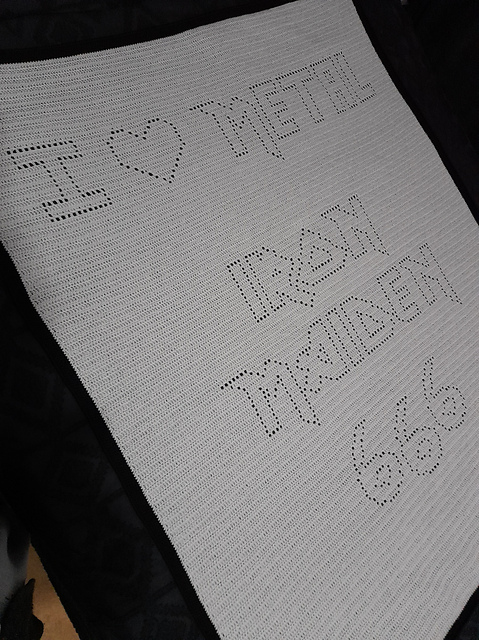 I ♡ METAL
IRON
MAIDEN
666